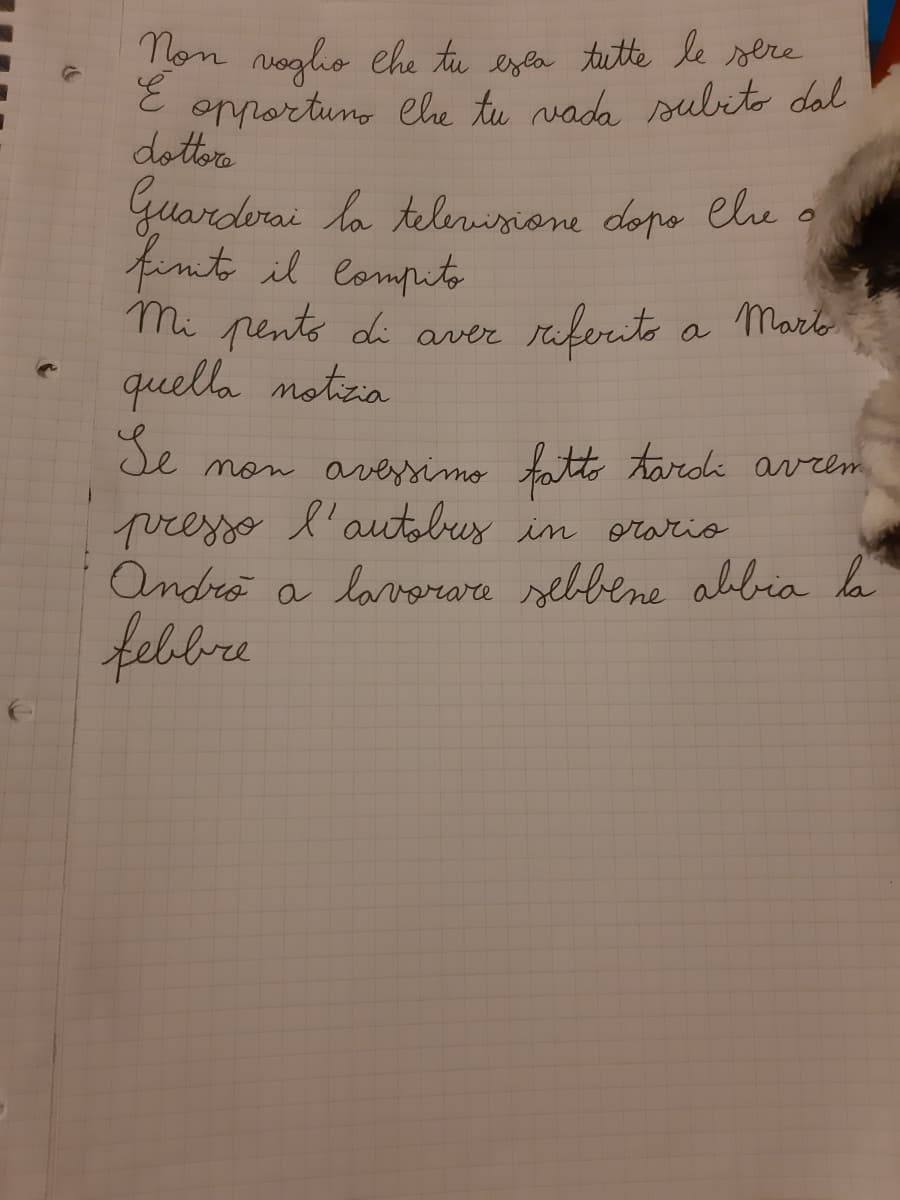 Non voglio che tu esca tutte le sere
È opportuno che tu vada subito dal
dottore
Guarderai la televisione dopo che
finito il compito
Mi pento di aver riferito a
quella notizia
Se non avessimo fatto tardi avrem
presso l'autobus in orario
Andrò a lavorare sebbene abbia la
febbre